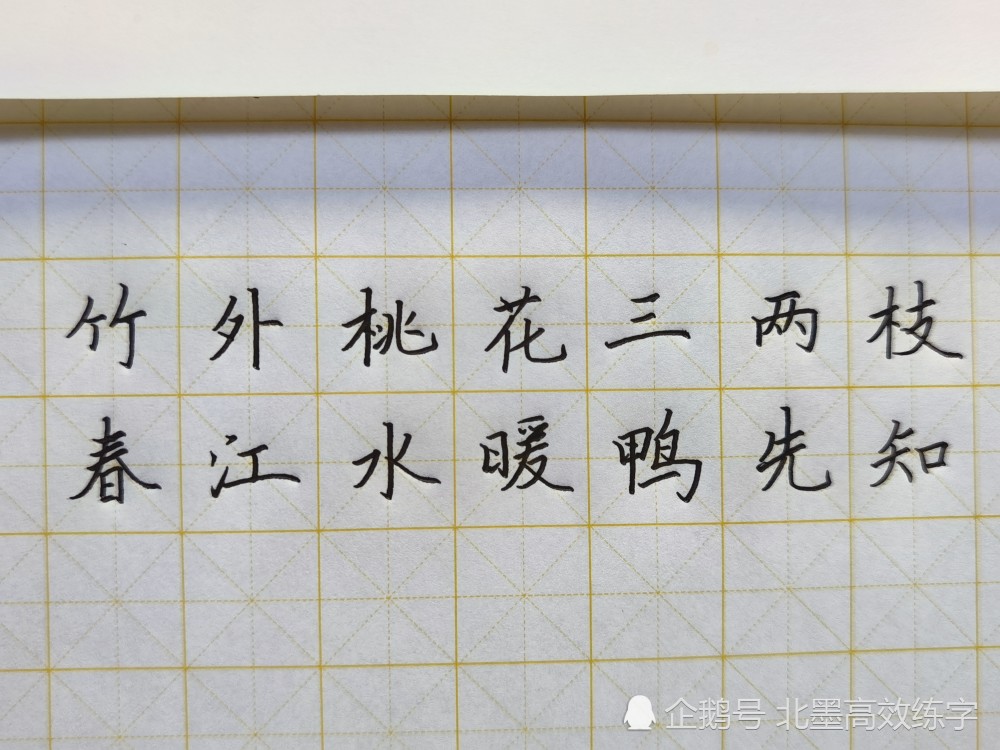 竹外桃花三两枝
春江水暖鸭先知
企鹅号 北墨高效练字